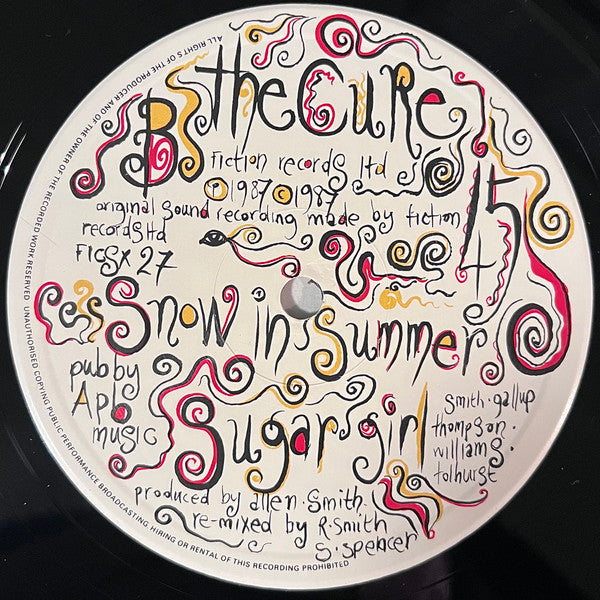 B
the Cure
fiction records ltd
℗1987©1987
original sound recording made by fiction
records ltd
FICSX 27
45
Snow in Summer
pub by
APB
music
Sugar girl
smith·gallup
thompson·
williams·
tolhurst
produced by allen·smith
re-mixed by R·smith
S·spencer
ALL RIGHTS OF THE PRODUCER AND OF THE OWNER OF THE RECORDED WORK RESERVED UNAUTHORISED COPYING PUBLIC PERFORMANCE BROADCASTING HIRING OR RENTAL OF THIS RECORDING PROHIBITED